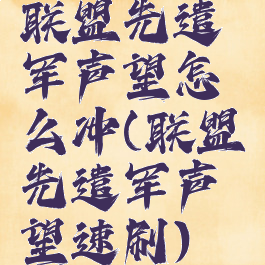 联盟先遣
军声望怎
么冲(联盟
先遣军声
望速刷)